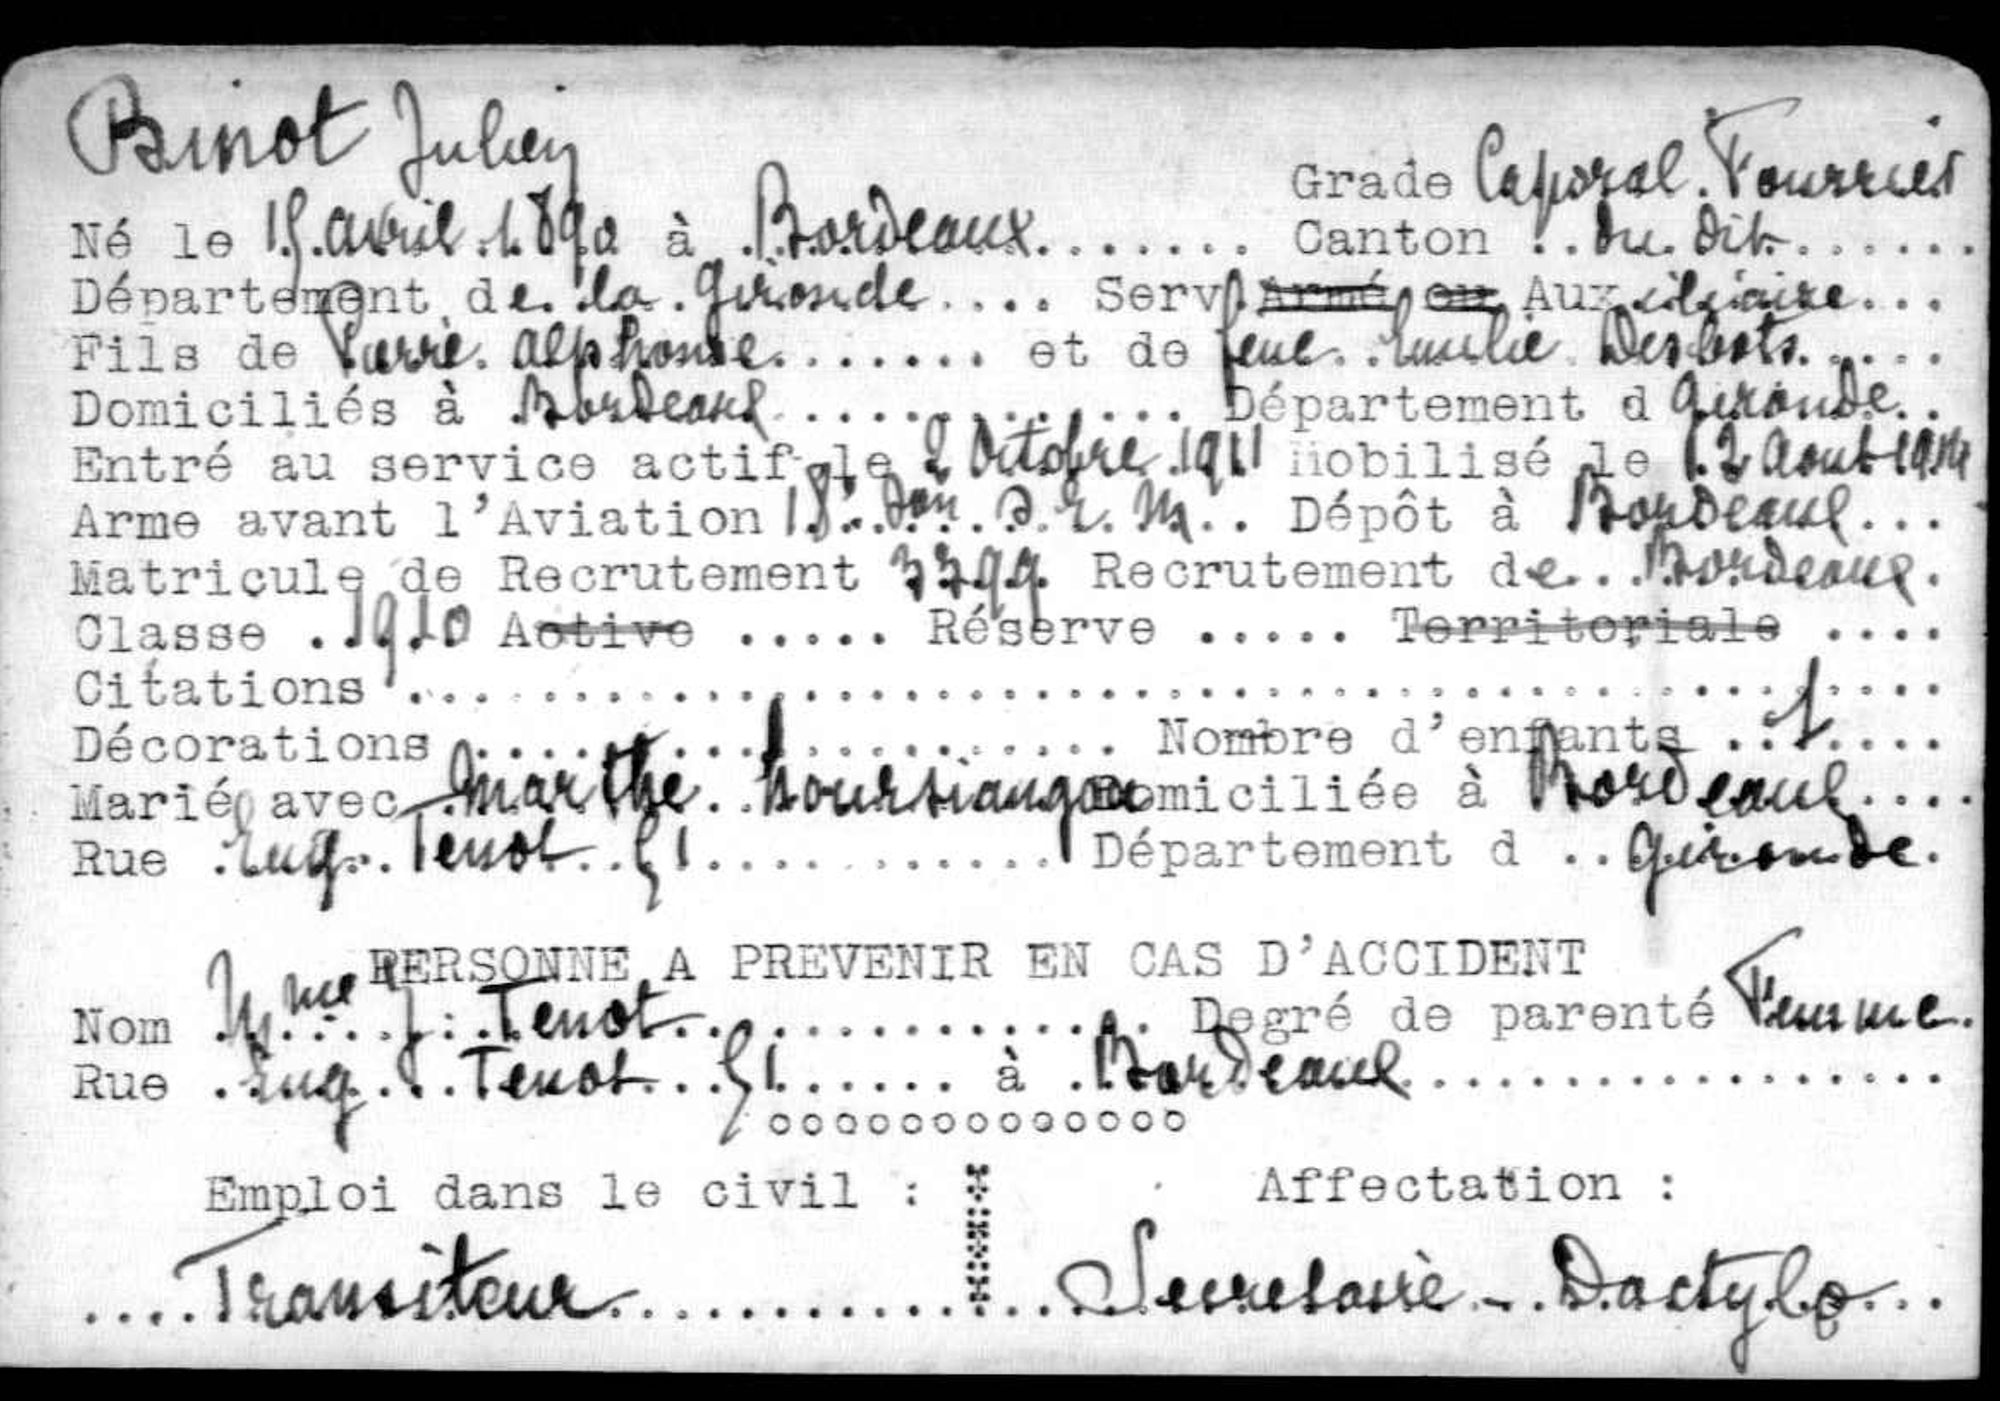 Binot Julien
Grade Caporal. Fourrier
Né le 15 avril 1890 à Bordeaux Canton du dit
Département de la Gironde Serv Armé ou Auxiliaire
Fils de Pierre Alphonse et de feue Emilie Desbots
Domiciliés à Bordeaux Département d Gironde
Entré au service actif le 2 Octobre 1911 Mobilisé le 12 Aout 1914
Arme avant l'Aviation 18e. Son. S. E. M. Dépôt à Bordeaux
Matricule de Recrutement 3399 Recrutement de Bordeaux
Classe 1910 Active Réserve Territoriale
Citations
Décorations Nombre d'enfants 1
Marié avec Marthe Domiciliée à Bordeaux
Rue Eug. Tenot 51 Département d Gironde
PERSONNE A PREVENIR EN CAS D'ACCIDENT
Nom Mme J. Tenot Degré de parenté Femme
Rue Eug. Tenot 51 à Bordeaux
Emploi dans le civil : Affectation :
Transiteur Secretaire - Dactylo